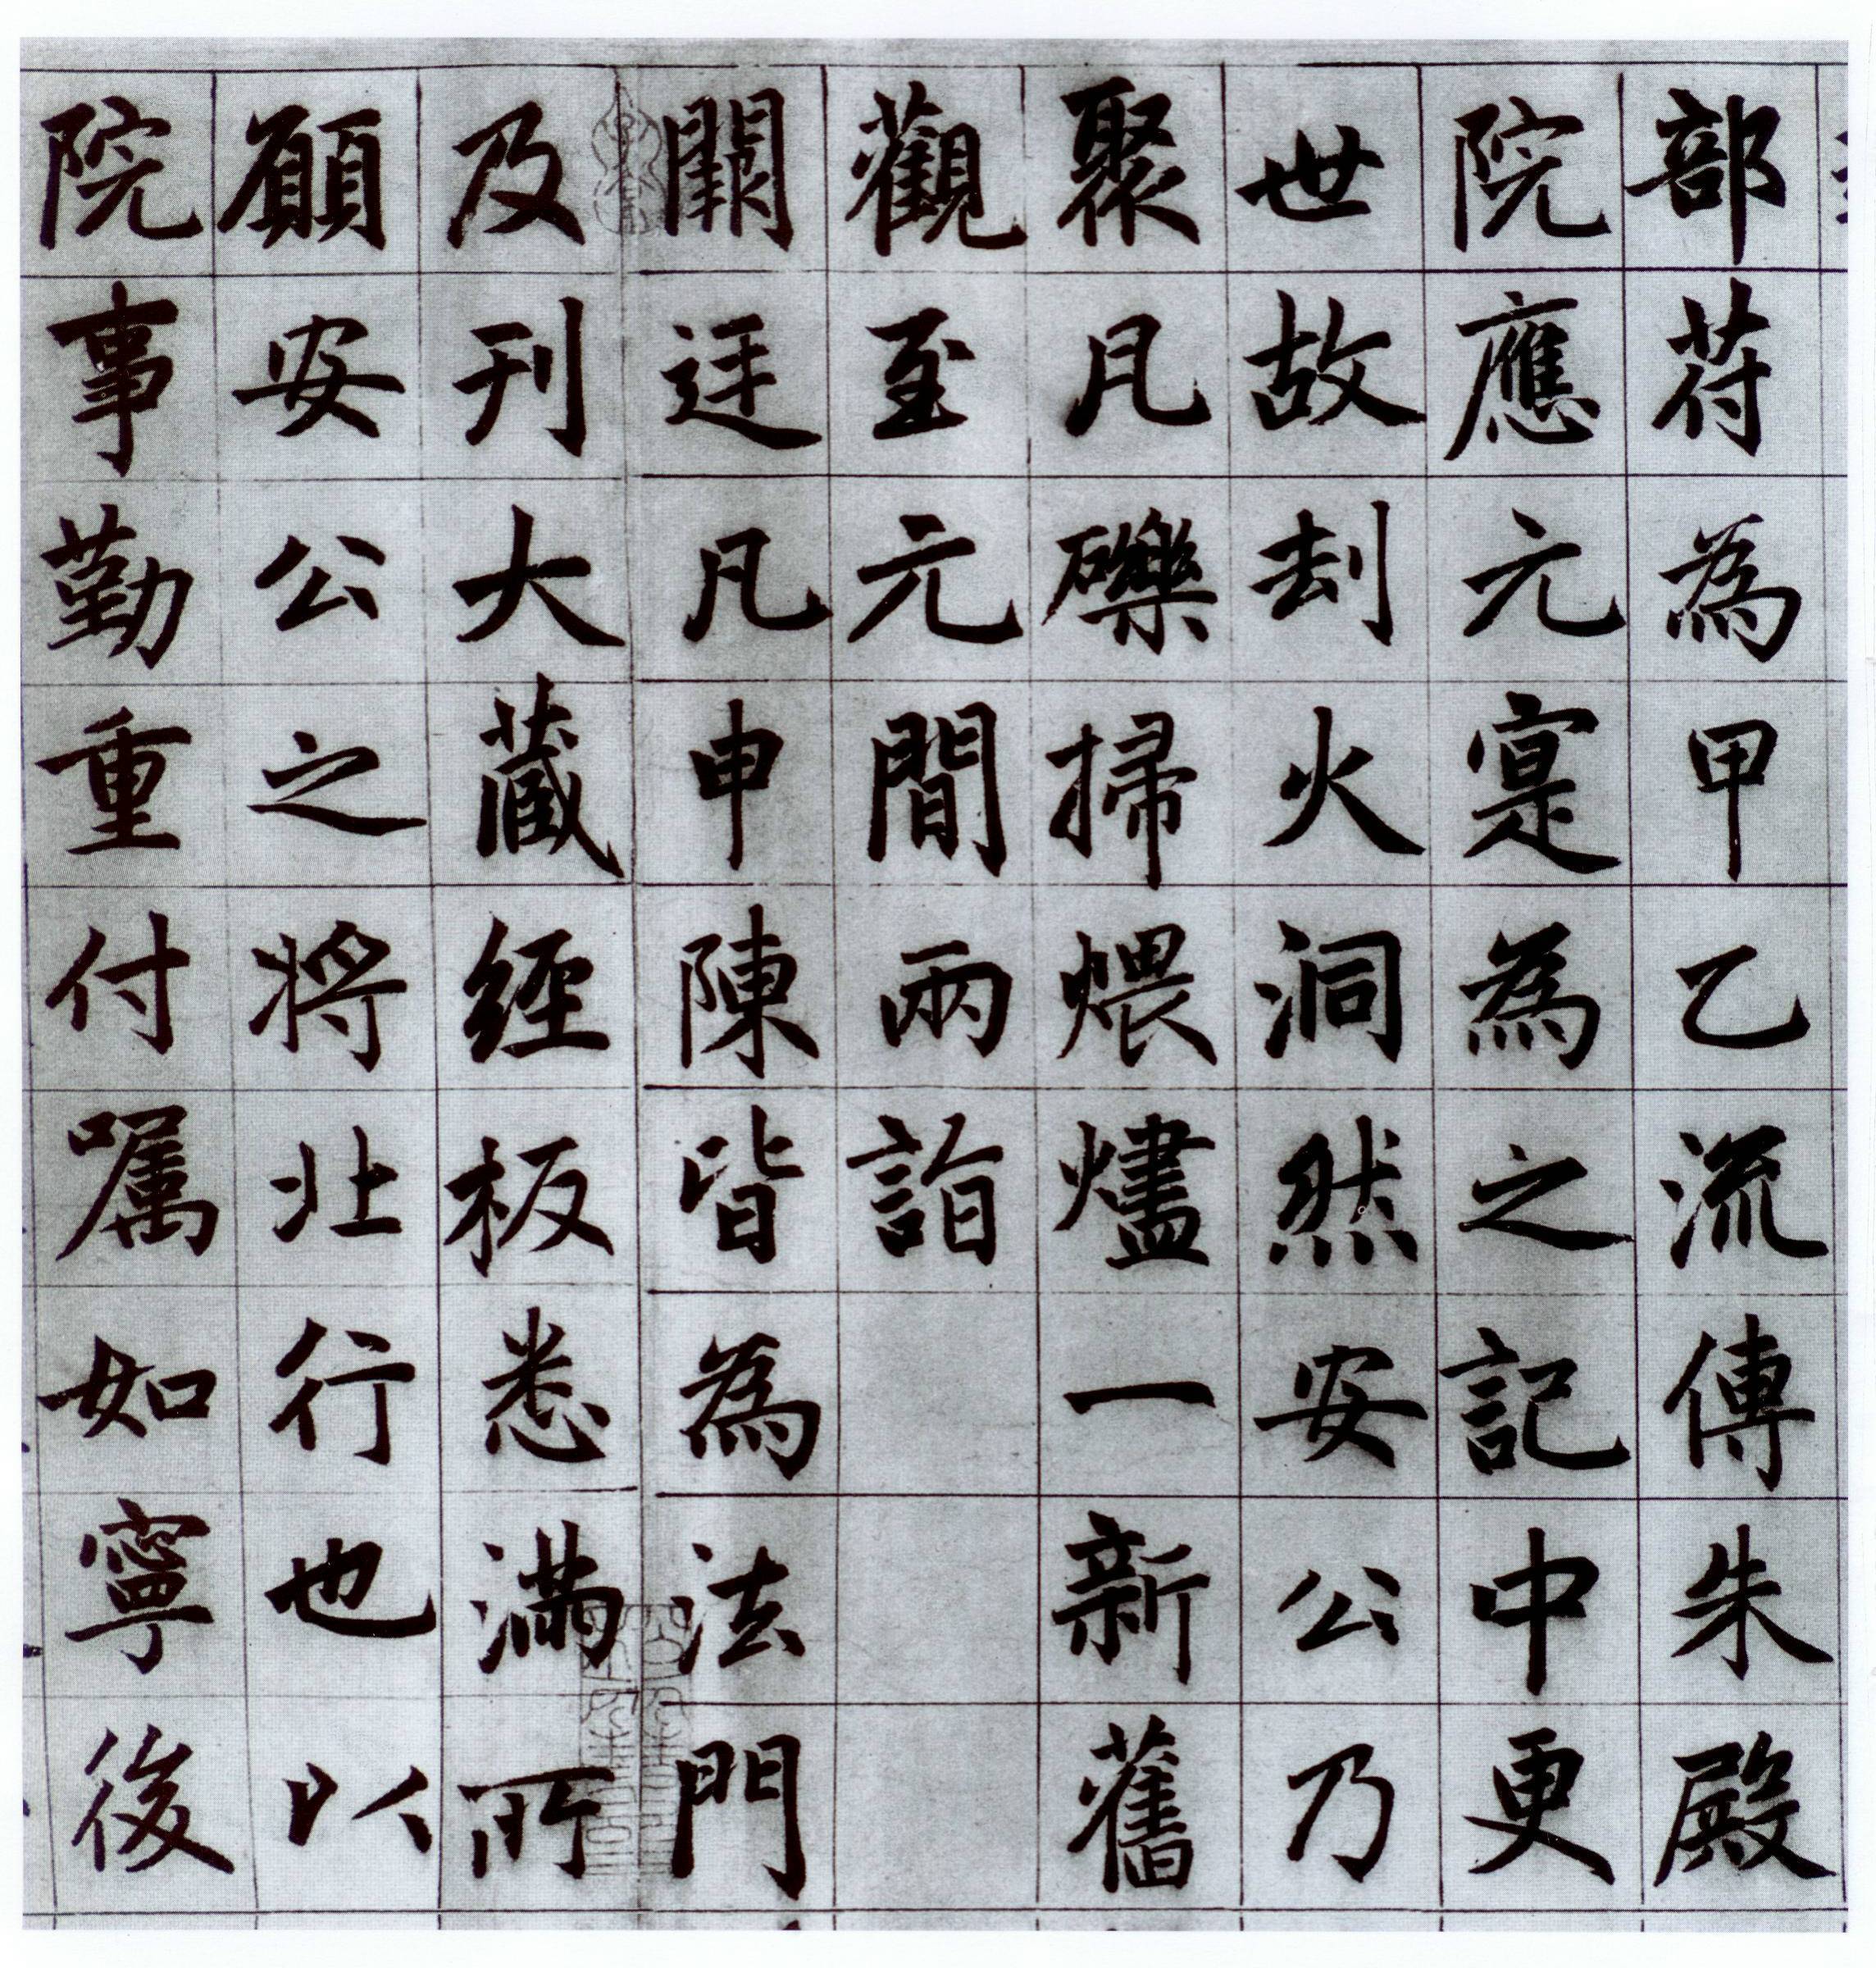 部苻為甲乙流傳朱殿
院應元寔為之記中更
世故刦火洞然安公乃
聚凡礫掃煨燼一新舊
觀至元間兩詣
闕廷凡申陳皆為法門
及刊大藏經板悉滿所
願安公之將北行也以
院事勤重付嘱如寧後